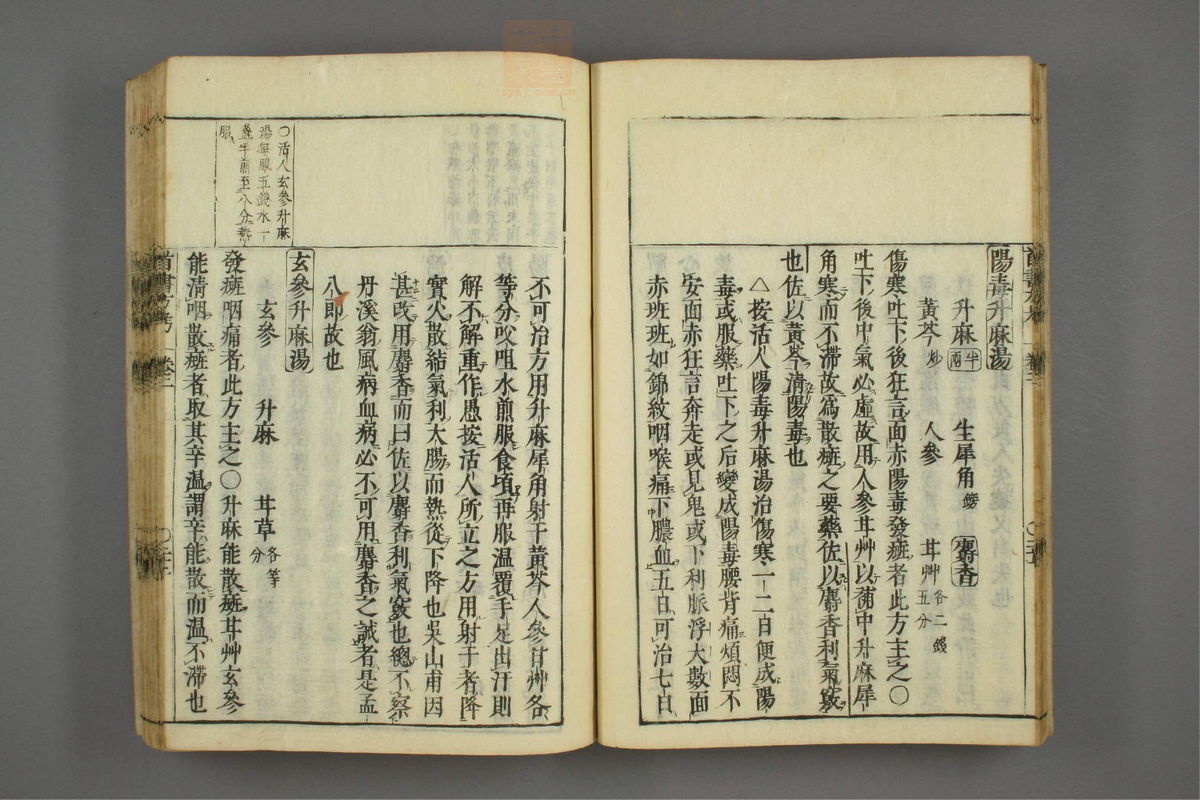 陽毒升麻湯
升麻半兩 生犀角錢 麝香
黃芩炒 人參 甘艸各二錢五分
傷寒吐下後狂言面赤陽毒發癍者此方主之〇
吐下後中氣必虛故用人參甘艸以補中升麻犀
角寒而不滯故爲散癍之要藥佐以麝香利氣竅
也佐以黃芩清陽毒也
△按活人陽毒升麻湯治傷寒一二日便成陽
毒或服藥吐下之后變成陽毒腰背痛煩悶不
安面赤狂言奔走或見鬼或下利脈浮大數面
赤班班如錦紋咽喉痛下膿血五日可治七日
首書方考 卷三
〇活人玄參升麻
湯每服五錢水一
盞半煎至八分熱
服
不可治方用升麻犀角射干黃芩人參甘艸各
等分㕮咀水煎服食頃再服溫覆手足出汗則
解不解重作愚按活人所立之方用射干者降
實火散結氣利大腸而熱從下降也吳山甫因
甚改用麝香而曰佐以麝香利氣竅也總不察
丹溪翁風病血病必不可用麝香之誡者是孟
八郎故也
玄參升麻湯
玄參 升麻 甘草各等分
發癍咽痛者此方主之〇升麻能散癍甘艸玄參
能清咽散癍者取其辛溫謂辛能散而溫不滯也
首書方考 卷三